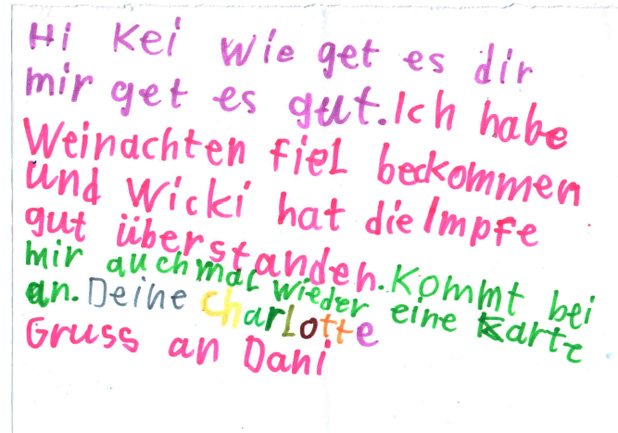 Hi Kei wie get es dir
mir get es gut. Ich habe
Weinachten fiel beckommen
und Wicki hat die Impfe
gut überstanden. Kommt bei
mir auch mal wieder eine Karte
an. Deine Charlotte
Gruss an Dani